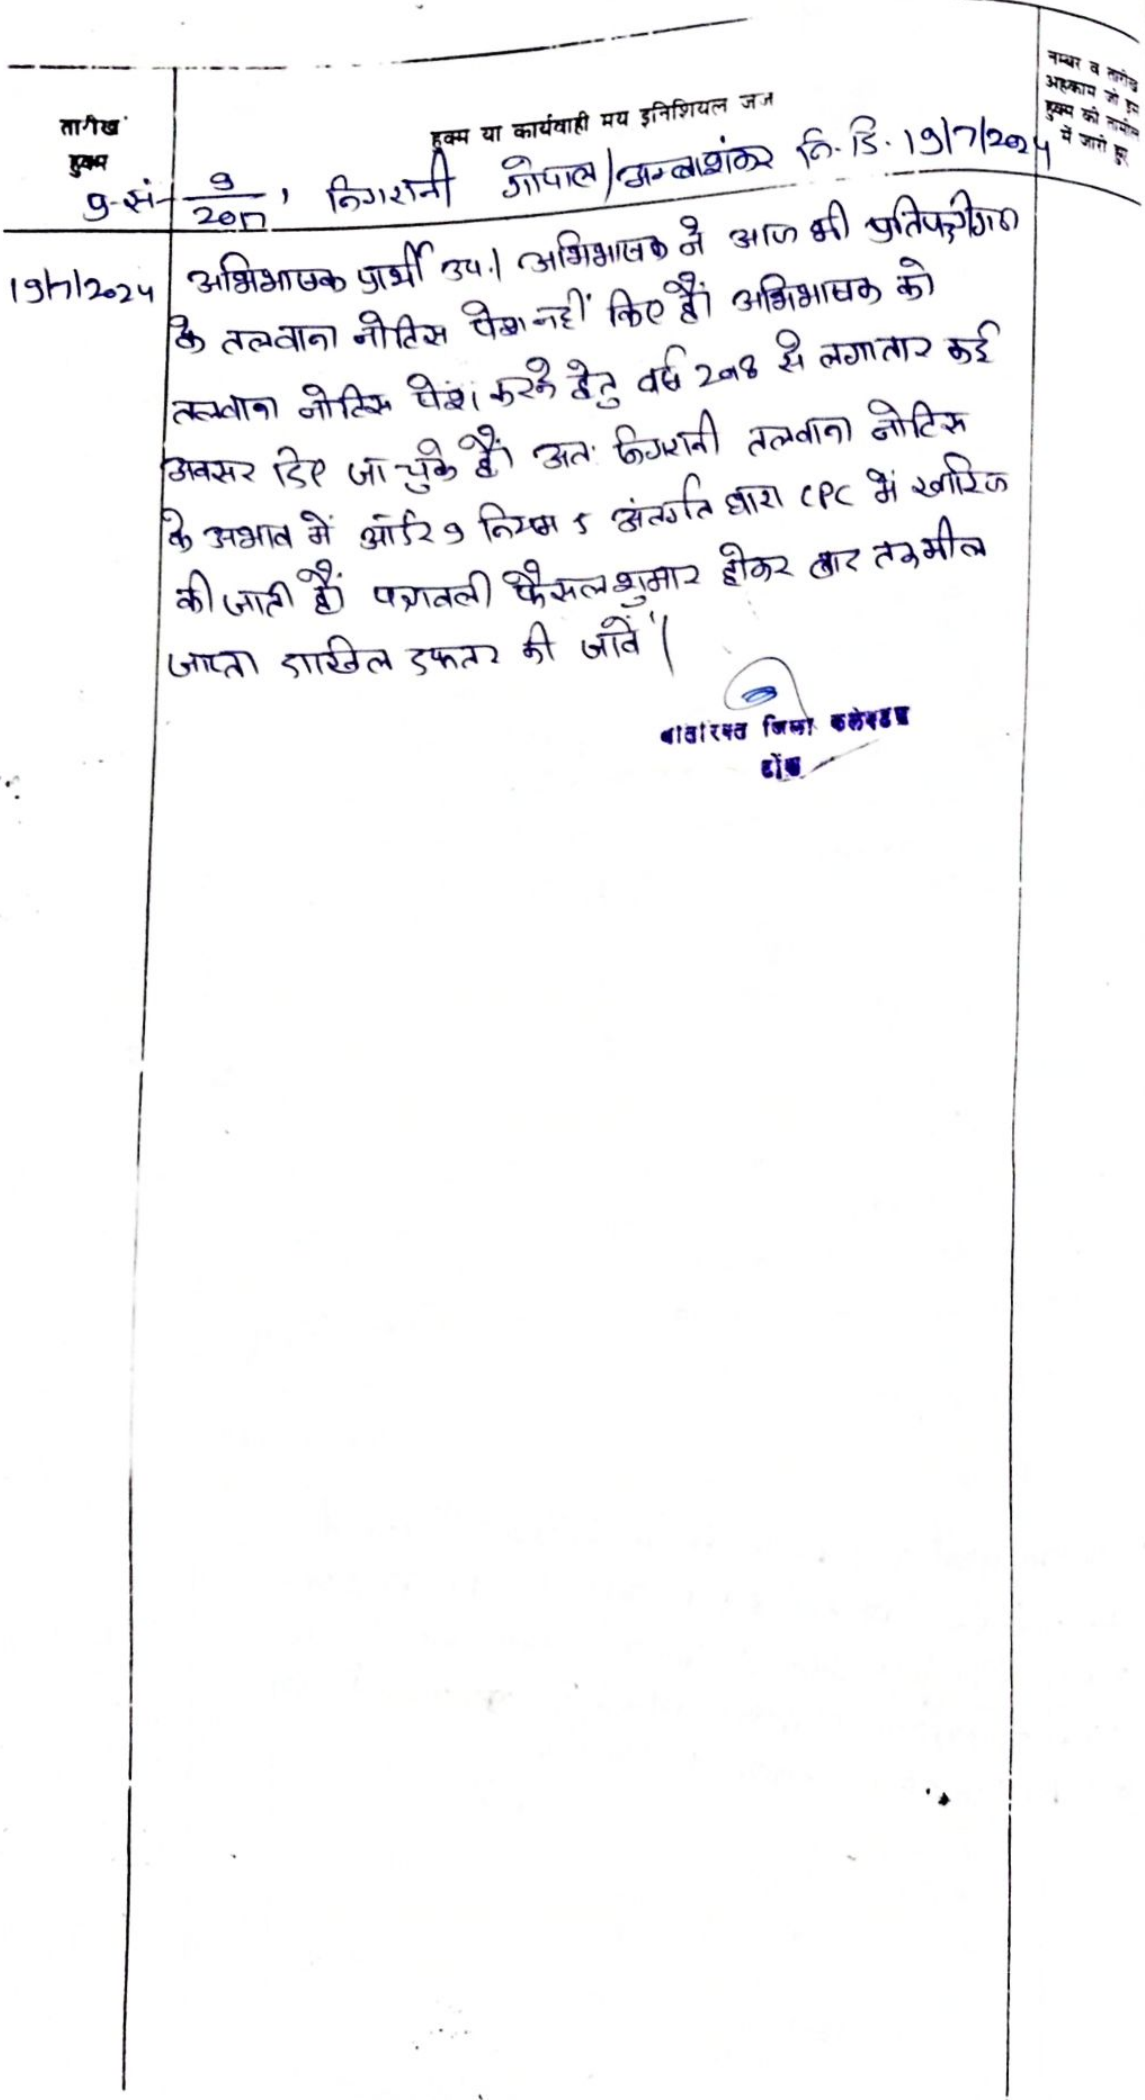 तारीख हुक्म
हुक्म या कार्यवाही मय इनिशियल जज
नम्बर व तारीख
अहकाम जो इस
हुक्म की तामील
में जारी हुए
प्र.सं. 9/2017, निगरानी गोपाल/अम्बाशंकर नि.दि. 19/7/2024
19/7/2024
अभिभाषक प्रार्थी उप.। अभिभाषक ने आज भी प्रतिपक्षीगण
के तलवाना नोटिस पेश नहीं किए हैं। अभिभाषक को
तलवाना नोटिस पेश करने हेतु वर्ष 2018 से लगातार कई
अवसर दिए जा चुके हैं। अतः निगरानी तलवाना नोटिस
के अभाव में ऑर्डर 9 नियम 5 अंतर्गत धारा CPC में खारिज
की जाती हैं। पत्रावली फैसलशुमार होकर बाद तकमील
जाप्ता दाखिल दफ्तर की जावें।
अतिरिक्त जिला कलेक्टर
टोंक